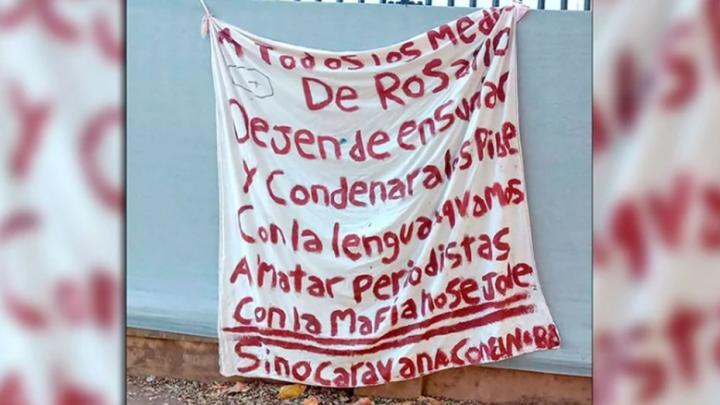 A Todos los Medi
De Rosario
Dejen de
y Condenar a los Pibe
Con la lengua q vamos
A Matar periodistas
Con la Mafia no se Jode
Sino Caravana